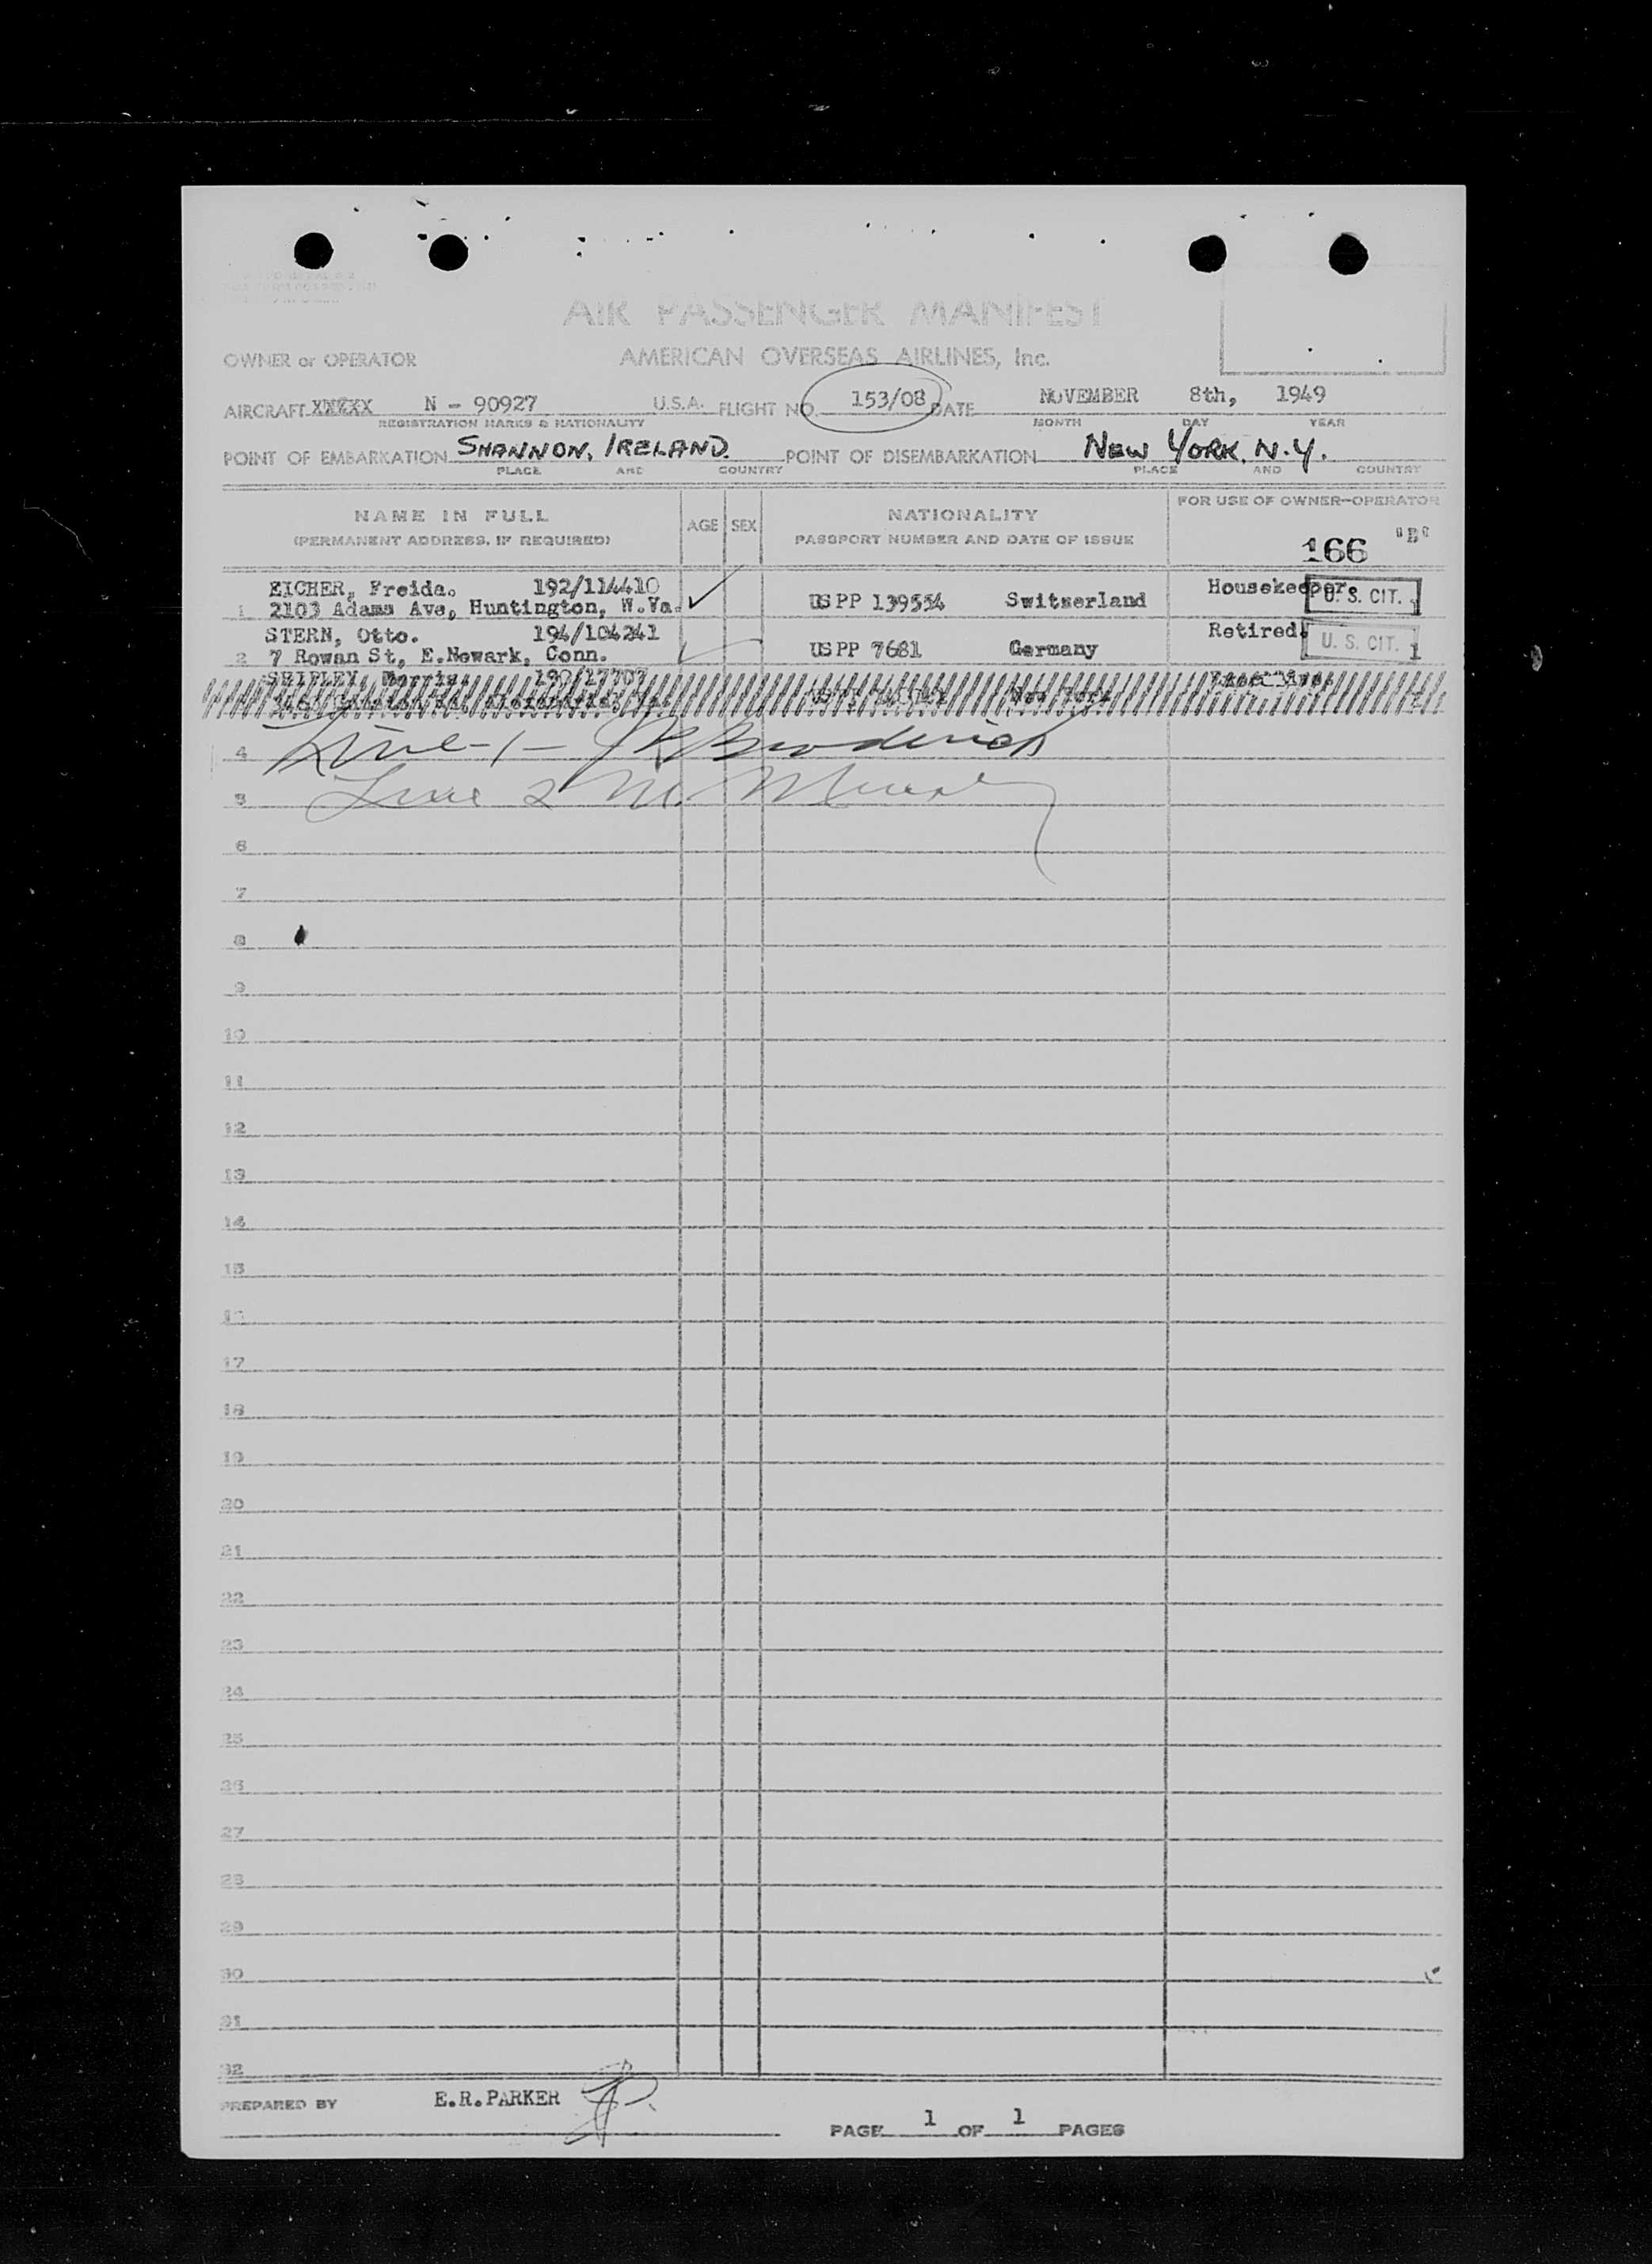 AIR PASSENGER MANIFEST
OWNER or OPERATOR AMERICAN OVERSEAS AIRLINES, Inc.
AIRCRAFT XXXXX N - 90927 U.S.A. FLIGHT NO. 153/08 DATE NOVEMBER 8th, 1949
REGISTRATION MARKS & NATIONALITY MONTH DAY YEAR
POINT OF EMBARKATION SHANNON, IRELAND. POINT OF DISEMBARKATION NEW YORK, N.Y.
PLACE AND COUNTRY PLACE AND COUNTRY
NAME IN FULL AGE SEX NATIONALITY FOR USE OF OWNER-OPERATOR
(PERMANENT ADDRESS, IF REQUIRED) PASSPORT NUMBER AND DATE OF ISSUE 166 "B"
EICHER, Freida. 192/114410 Housekeeper.
1 2103 Adams Ave, Huntington, W.Va. USPP 139554 Switzerland U. S. CIT. 1
STERN, Otto. 194/104241 Retired.
2 7 Rowan St, E.Newark, Conn. USPP 7681 Germany U. S. CIT. 1
SHIPLEY, Morris. 190/17707
New York
4 Line - 1 - Broderick
5 Line 2 M.
6
7
8
9
10
11
12
13
14
15
16
17
18
19
20
21
22
23
24
25
26
27
28
29
30
31
32
PREPARED BY E.R.PARKER
PAGE 1 OF 1 PAGES